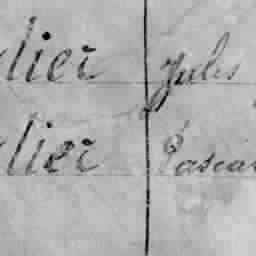 lier Jules
lier Pascal